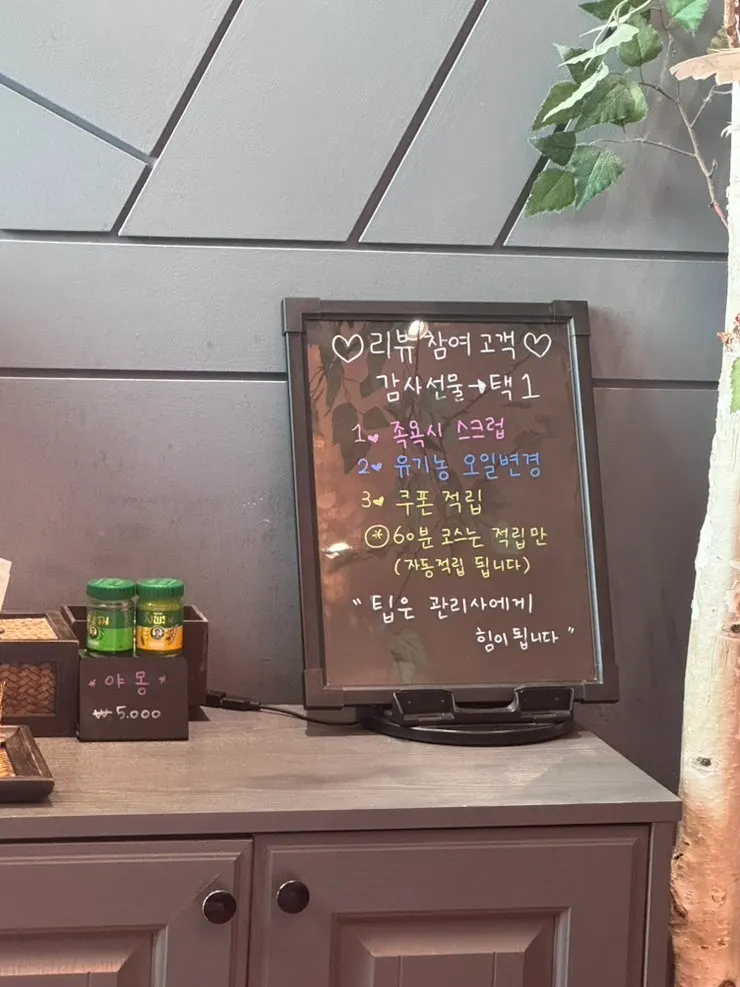 ♡리뷰 참여 고객♡
감사선물→택1
1♥ 족욕시 스크럽
2♥ 유기농 오일변경
3♥ 쿠폰 적립
※60분 코스는 적립만
(자동적립 됩니다)
"팁은 관리사에게
힘이 됩니다"
* 야 몽 *
₩5.000